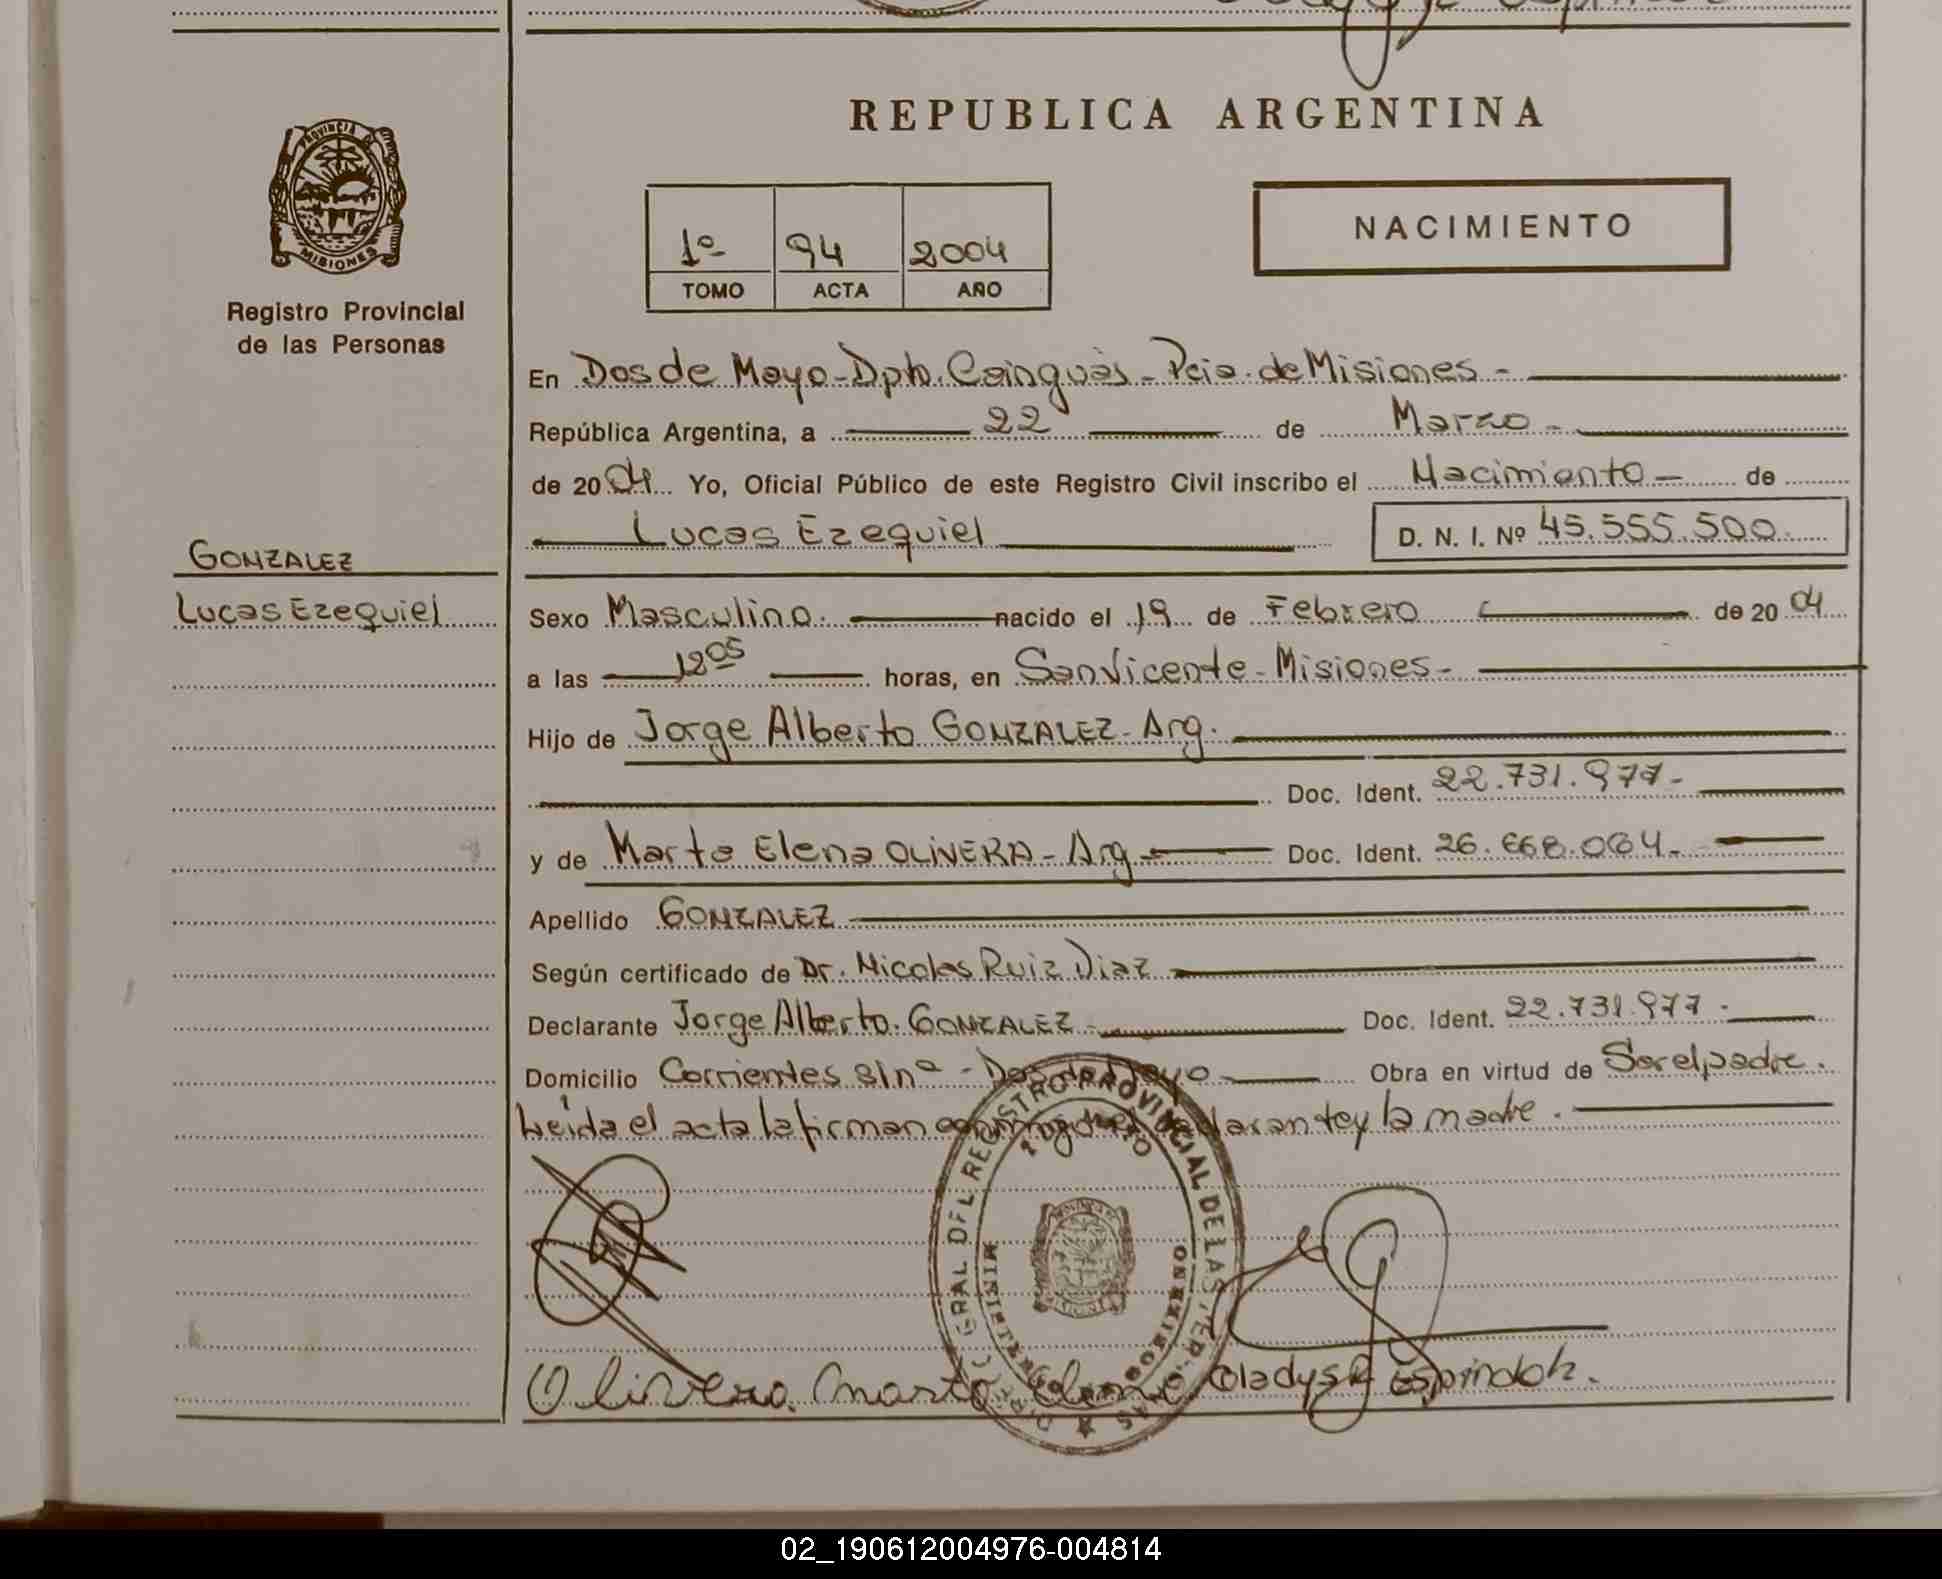 REPUBLICA ARGENTINA
PROVINCIA DE
MISIONES
Registro Provincial
de las Personas
1º 94 2004
TOMO ACTA AÑO
NACIMIENTO
En Dos de Mayo - Dpto. Cainguás - Pcia. de Misiones -
República Argentina, a 22 de Marzo -
de 2004 Yo, Oficial Público de este Registro Civil inscribo el Nacimiento - de
Lucas Ezequiel D. N. I. Nº 45.555.500
GONZALEZ
Lucas Ezequiel
Sexo Masculino. nacido el 19 de Febrero de 2004
a las 12 05 horas, en San Vicente - Misiones -
Hijo de Jorge Alberto GONZALEZ - Arg.
Doc. Ident. 22.731.977 -
y de Marta Elena OLIVERA - Arg - Doc. Ident. 26.668.064 -
Apellido GONZALEZ
Según certificado de Dr. Nicolas Ruiz Diaz
Declarante Jorge Alberto. GONZALEZ - Doc. Ident. 22.731.977 -
Domicilio Corrientes s/nº - Dos de Mayo Obra en virtud de Ser el padre.
Leída el acta la firman conmigo el declarante y la madre.
GRAL DEL REGISTRO PROVINCIAL DE LAS PERSONAS
MINISTERIO GOBIERNO
Olivera Marta Elena Gladys R Espindola.
02_190612004976-004814